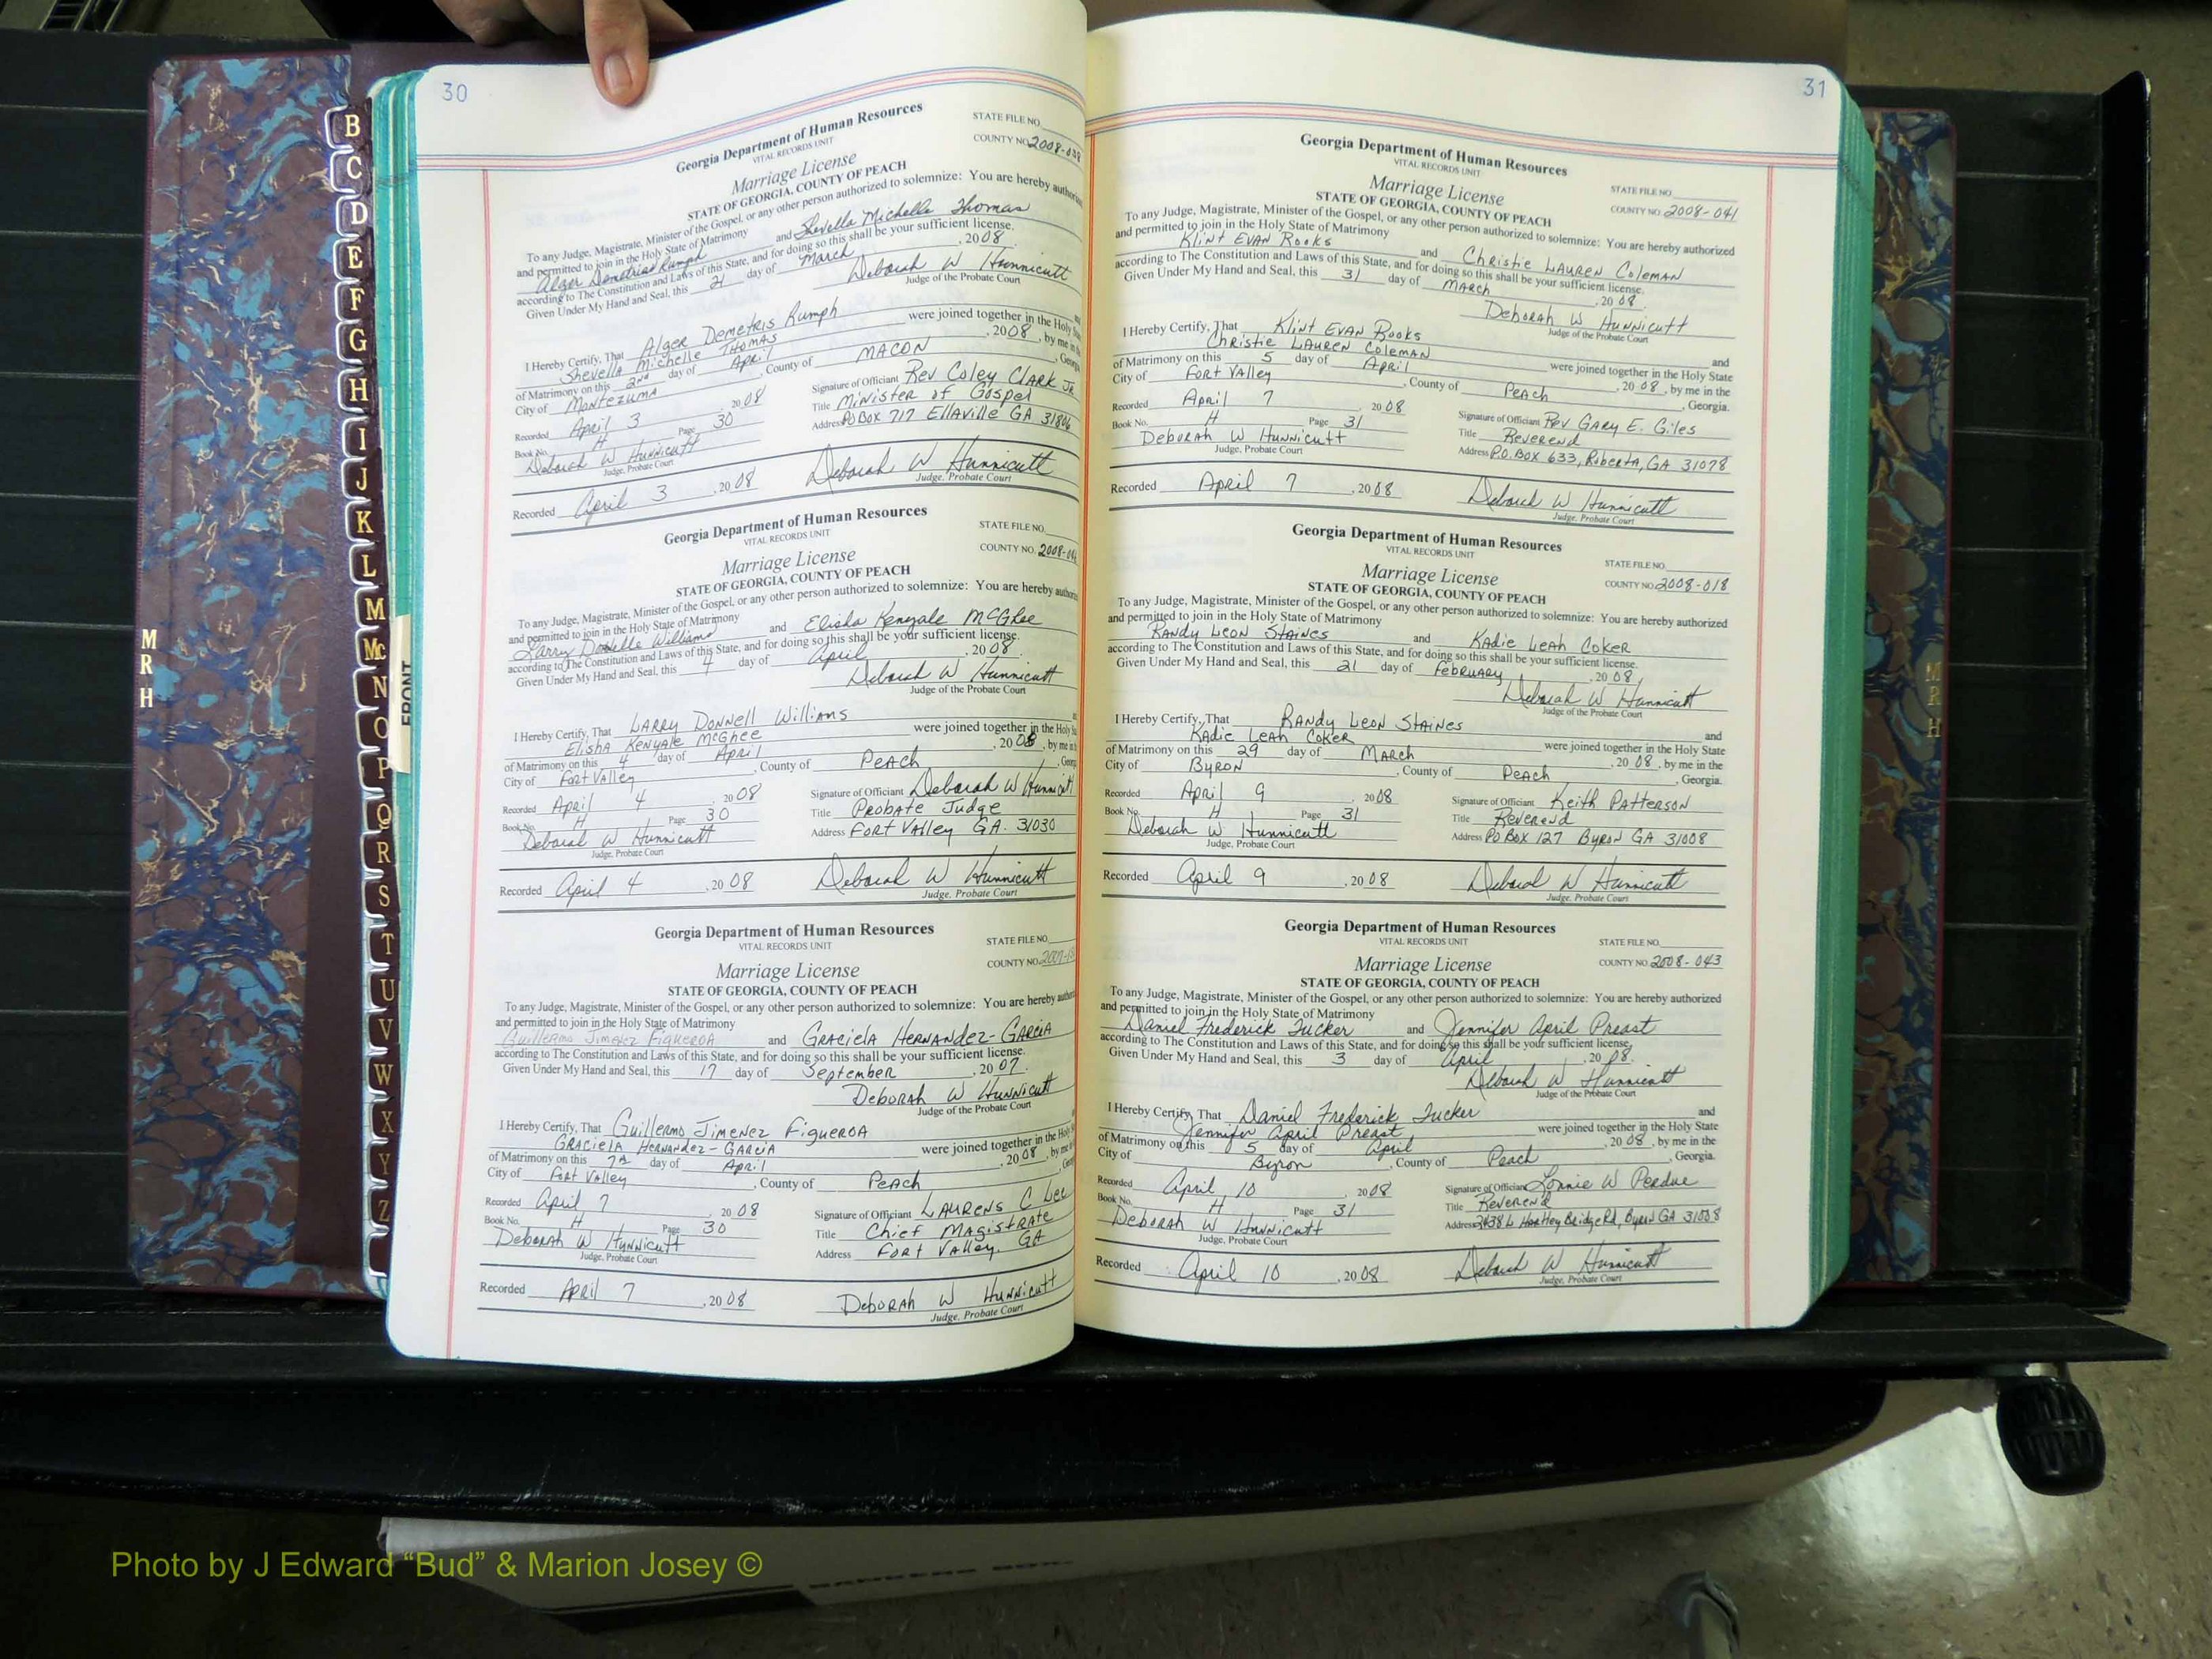 30
Georgia Department of Human Resources
VITAL RECORDS UNIT
STATE FILE NO.
COUNTY NO. 2008-038
Marriage License
STATE OF GEORGIA, COUNTY OF PEACH
To any Judge, Magistrate, Minister of the Gospel, or any other person authorized to solemnize: You are hereby authorized
and permitted to join in the Holy State of Matrimony
Alger Demetrias Rumph and Shevella Michelle Thomas
according to The Constitution and Laws of this State, and for doing so this shall be your sufficient license.
Given Under My Hand and Seal, this 21 day of March, 2008
Deborah W Hunnicutt
Judge of the Probate Court
I Hereby Certify, That Alger Demetris Rumph
Shevella Michelle THOMAS were joined together in the Holy
of Matrimony on this 2nd day of April, 2008, by me in
City of Montezuma, County of MACON
Recorded April 3 2008
Signature of Officiant Rev Coley Clark Jr
Book No. H Page 30
Title Minister of Gospel
Deborah W Hunnicutt
Address PO Box 717 Ellaville GA 31806
Judge, Probate Court
Recorded April 3, 2008 Deborah W Hunnicutt
Judge, Probate Court
Georgia Department of Human Resources
VITAL RECORDS UNIT
STATE FILE NO.
COUNTY NO.
Marriage License
STATE OF GEORGIA, COUNTY OF PEACH
To any Judge, Magistrate, Minister of the Gospel, or any other person authorized to solemnize: You are hereby
and permitted to join in the Holy State of Matrimony
Larry Donelle Williams and Elisha Kenyale McGhee
according to The Constitution and Laws of this State, and for doing so this shall be your sufficient license.
Given Under My Hand and Seal, this 4 day of April, 2008
Deborah W Hunnicutt
Judge of the Probate Court
I Hereby Certify, That LARRY DONNELL Williams
Elisha Kenyale McGhee were joined together in the Holy
of Matrimony on this 4 day of April, 2008, by me in
City of Fort Valley, County of Peach
Recorded April 4, 2008
Signature of Officiant Deborah W Hunnicutt
Book No. H Page 30
Title Probate Judge
Deborah W Hunnicutt
Address Fort Valley GA. 31030
Judge, Probate Court
Recorded April 4, 2008 Deborah W Hunnicutt
Judge, Probate Court
Georgia Department of Human Resources
VITAL RECORDS UNIT
STATE FILE NO.
COUNTY NO.
Marriage License
STATE OF GEORGIA, COUNTY OF PEACH
To any Judge, Magistrate, Minister of the Gospel, or any other person authorized to solemnize: You are hereby
and permitted to join in the Holy State of Matrimony
Guillermo Jimenez Figueroa and GRACIELA HERNANdez-GARCIA
according to The Constitution and Laws of this State, and for doing so this shall be your sufficient license.
Given Under My Hand and Seal, this 17 day of September, 2007
DEBORAH W HUNNICUTT
Judge of the Probate Court
I Hereby Certify, That Guillermo Jimenez Figueroa
GRACIELA HERNANDEZ-GARCIA were joined together in the Holy
of Matrimony on this 7th day of April, 2008, by me
City of Fort Valley, County of Peach
Recorded April 7, 2008
Signature of Officiant LAURENS C Lee
Book No. H Page 30
Title Chief Magistrate
Deborah W Hunnicutt
Address Fort Valley, GA
Judge, Probate Court
Recorded April 7, 2008 Deborah W Hunnicutt
Judge, Probate Court
31
Georgia Department of Human Resources
VITAL RECORDS UNIT
STATE FILE NO.
COUNTY NO. 2008-041
Marriage License
STATE OF GEORGIA, COUNTY OF PEACH
To any Judge, Magistrate, Minister of the Gospel, or any other person authorized to solemnize: You are hereby authorized
and permitted to join in the Holy State of Matrimony
Klint Evan Rooks and Christie LAUREN Coleman
according to The Constitution and Laws of this State, and for doing so this shall be your sufficient license.
Given Under My Hand and Seal, this 31 day of March, 2008
Deborah W Hunnicutt
Judge of the Probate Court
I Hereby Certify, That Klint Evan Rooks and
Christie LAUREN Coleman were joined together in the Holy State
of Matrimony on this 5 day of April, 2008, by me in the
City of Fort Valley, County of Peach, Georgia.
Recorded April 7, 2008
Signature of Officiant Rev Gary E. Giles
Book No. H Page 31
Title Reverend
Deborah W Hunnicutt
Address P.O. Box 633, Roberta, GA 31078
Judge, Probate Court
Recorded April 7, 2008 Deborah W Hunnicutt
Judge, Probate Court
Georgia Department of Human Resources
VITAL RECORDS UNIT
STATE FILE NO.
COUNTY NO. 2008-018
Marriage License
STATE OF GEORGIA, COUNTY OF PEACH
To any Judge, Magistrate, Minister of the Gospel, or any other person authorized to solemnize: You are hereby authorized
and permitted to join in the Holy State of Matrimony
Randy Leon Staines and Kadie Leah Coker
according to The Constitution and Laws of this State, and for doing so this shall be your sufficient license.
Given Under My Hand and Seal, this 21 day of February, 2008
Deborah W Hunnicutt
Judge of the Probate Court
I Hereby Certify, That Randy Leon Staines and
Kadie Leah Coker were joined together in the Holy State
of Matrimony on this 29 day of March, 2008, by me in the
City of Byron, County of Peach, Georgia.
Recorded April 9, 2008
Signature of Officiant Keith Patterson
Book No. H Page 31
Title Reverend
Deborah W Hunnicutt
Address PO Box 127 Byron GA 31008
Judge, Probate Court
Recorded April 9, 2008 Deborah W Hunnicutt
Judge, Probate Court
Georgia Department of Human Resources
VITAL RECORDS UNIT
STATE FILE NO.
COUNTY NO. 2008-043
Marriage License
STATE OF GEORGIA, COUNTY OF PEACH
To any Judge, Magistrate, Minister of the Gospel, or any other person authorized to solemnize: You are hereby authorized
and permitted to join in the Holy State of Matrimony
Daniel Frederick Tucker and Jennifer April Preast
according to The Constitution and Laws of this State, and for doing so this shall be your sufficient license.
Given Under My Hand and Seal, this 3 day of April, 2008.
Deborah W Hunnicutt
Judge of the Probate Court
I Hereby Certify, That Daniel Frederick Tucker and
Jennifer April Preast were joined together in the Holy State
of Matrimony on this 5 day of April, 2008, by me in the
City of Byron, County of Peach, Georgia.
Recorded April 10, 2008
Signature of Officiant Lonnie W Perdue
Book No. H Page 31
Title Reverend
Deborah W Hunnicutt
Address Hartley Bridge Rd, Byron GA 31008
Judge, Probate Court
Recorded April 10, 2008 Deborah W Hunnicutt
Judge, Probate Court
B
C
D
E
F
G
H
I
J
K
L
M
Mc
N
O
P
Q
R
S
T
U
V
W
X
Y
Z
FRONT
M
R
H
M
R
H
Photo by J Edward “Bud” & Marion Josey ©